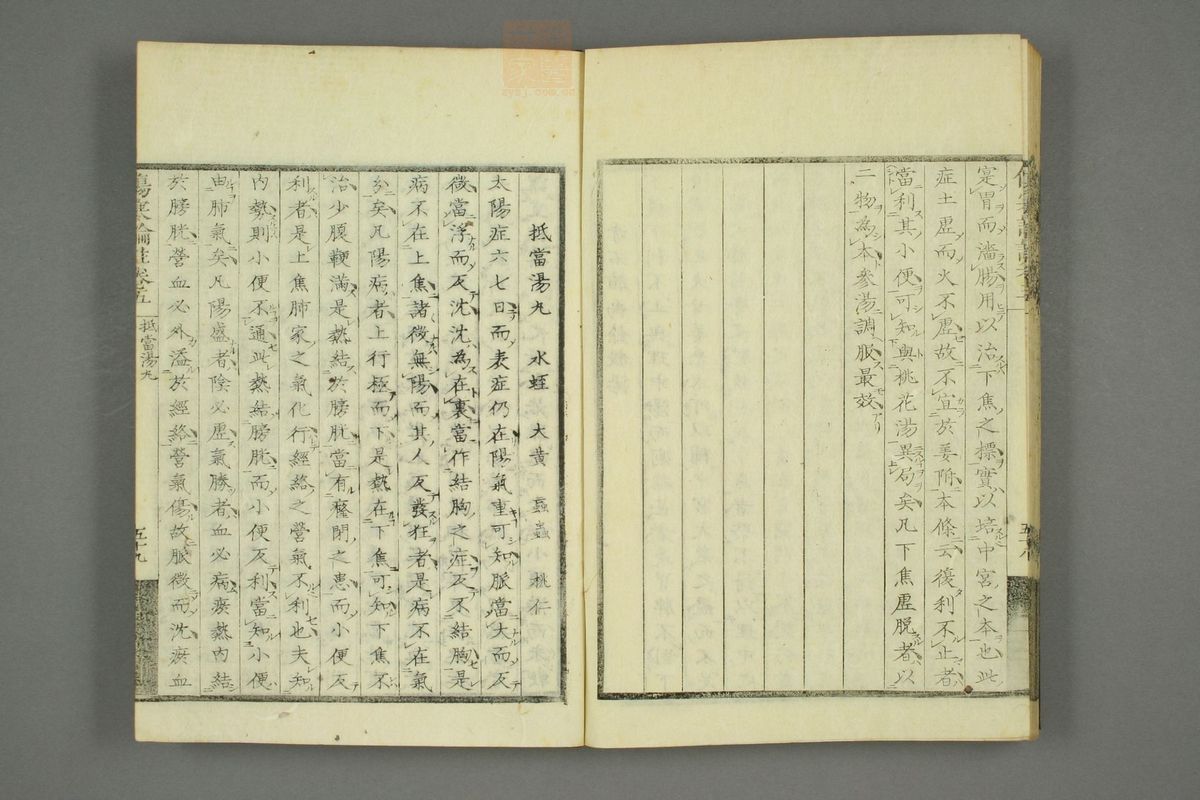 寔胃而濇腸用以治下焦之標實以培中宮之本也此
症土虛而火不虛故不宜於姜附本條云復利不止者
當利其小便可知與桃花湯異局矣凡下焦虛脫者以
二物為本參湯調服最效
五十八
抵當湯丸 水蛭 大黃 䖟蟲 桃仁
太陽症六七日而表症仍在陽氣重可知脈當大而反
微當浮而反沈沈為在裏當作結胸之症反不結胸是
病不在上焦諸微無陽而其人反發狂者是病不在氣
分矣凡陽病者上行極而下是熱在下焦可知下焦不
治少腹鞕滿是熱結於膀胱當有癃閉之患而小便反
利者是上焦肺家之氣化行經絡之營氣不利也夫知
內熱則小便不通此熱結膀胱而小便反利當知小便
由肺氣矣凡陽盛者陰必虛氣勝者血必病瘀熱內結
於膀胱營血必外溢於經絡營氣傷故脈微而沈瘀血
傷寒論註卷五 抵當湯丸 五十九